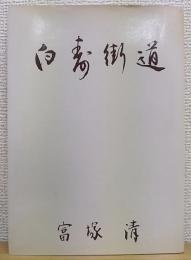 白寿街道
富塚清